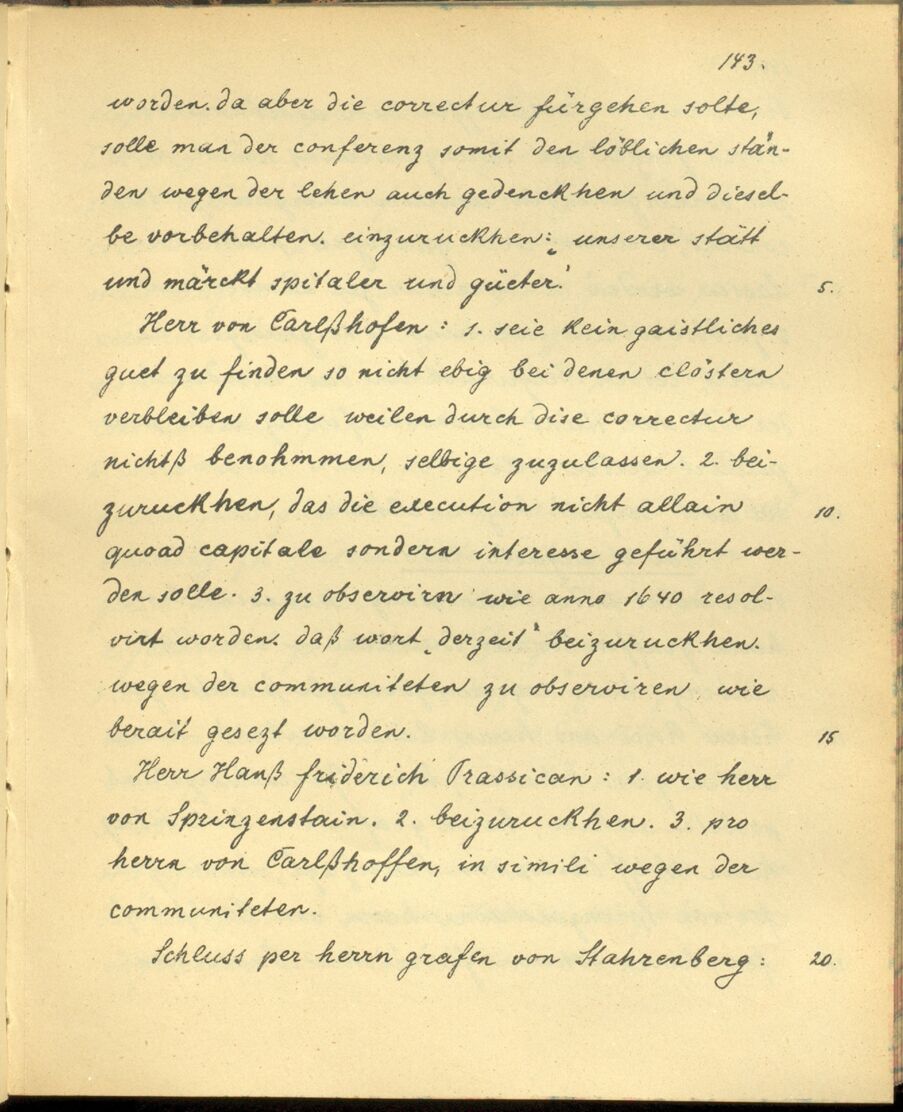 143.
worden. da aber die correctur fürgehen solte,
solle man der conferenz somit den löblichen stän-
den wegen der lehen auch gedenckhen und diesel-
be vorbehalten. einzuruckhen: „unserer stätt
und märckt spitaler und güeter." 5.
Herr von Carlßhofen : 1. seie kein gaistliches
guet zu finden so nicht ebig bei denen clöstern
verbleiben solle weilen durch dise correctur
nichtß benohmmen, selbige zuzulassen. 2. bei-
zuruckhen, das die execution nicht allain 10.
quoad capitale sondern interesse geführt wer-
den solle. 3. zu observirn wie anno 1640 resol-
virt worden. daß wort „derzeit" beizuruckhen.
wegen der communiteten zu observiren wie
berait gesezt worden. 15
Herr Hanß friderich Prassican : 1. wie herr
von Sprinzenstain. 2. beizuruckhen. 3. pro
herrn von Carlßhoffen, in simili wegen der
communiteten.
Schluss per herrn grafen von Stahrenberg : 20.